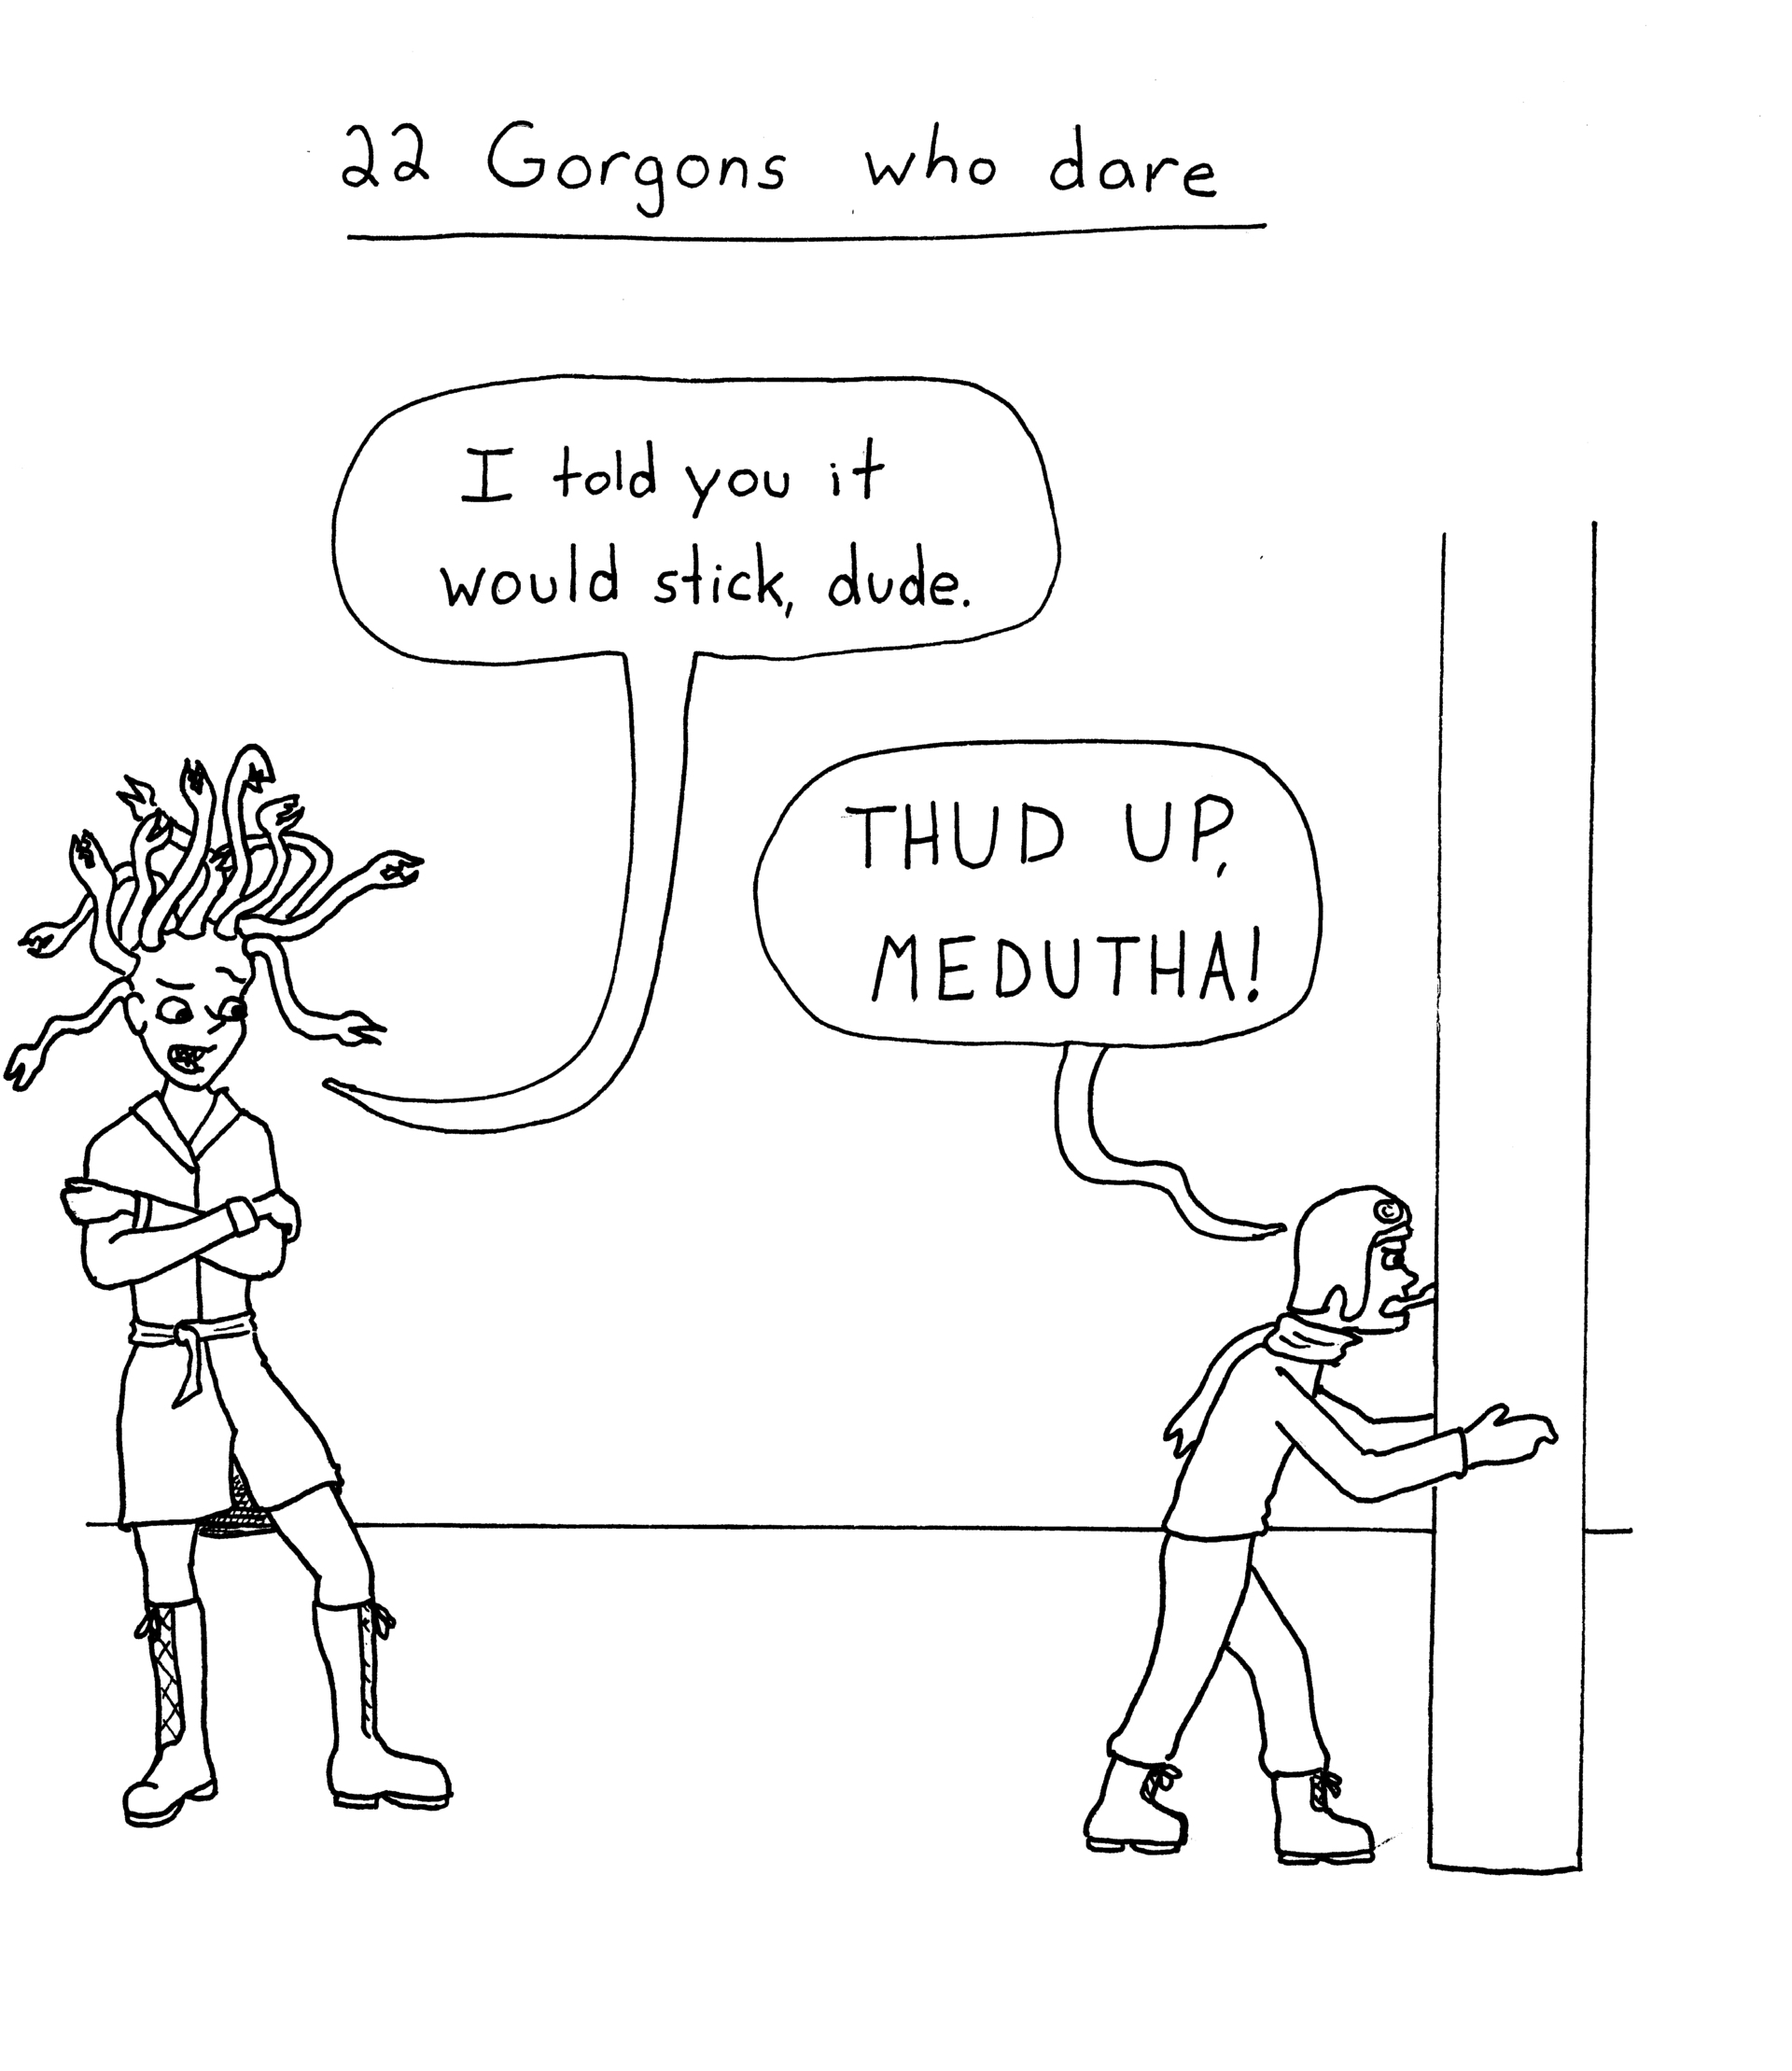 22 Gorgons who dare
I told you it
would stick, dude.
THUD UP,
MEDUTHA!
C